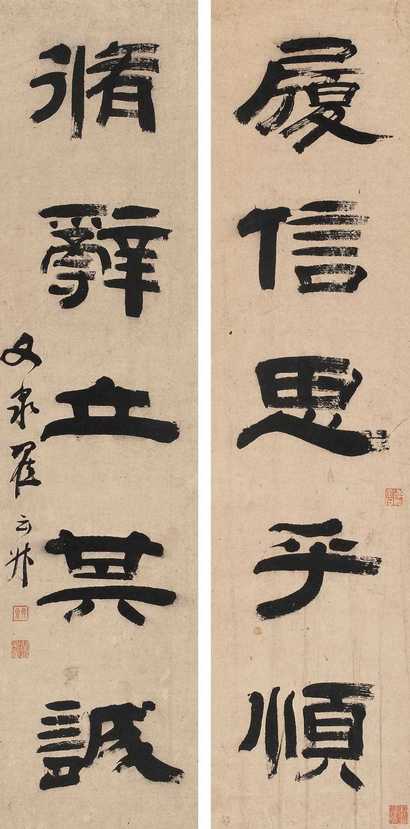 履信思乎順
脩辭立其誠
文泉翟云升